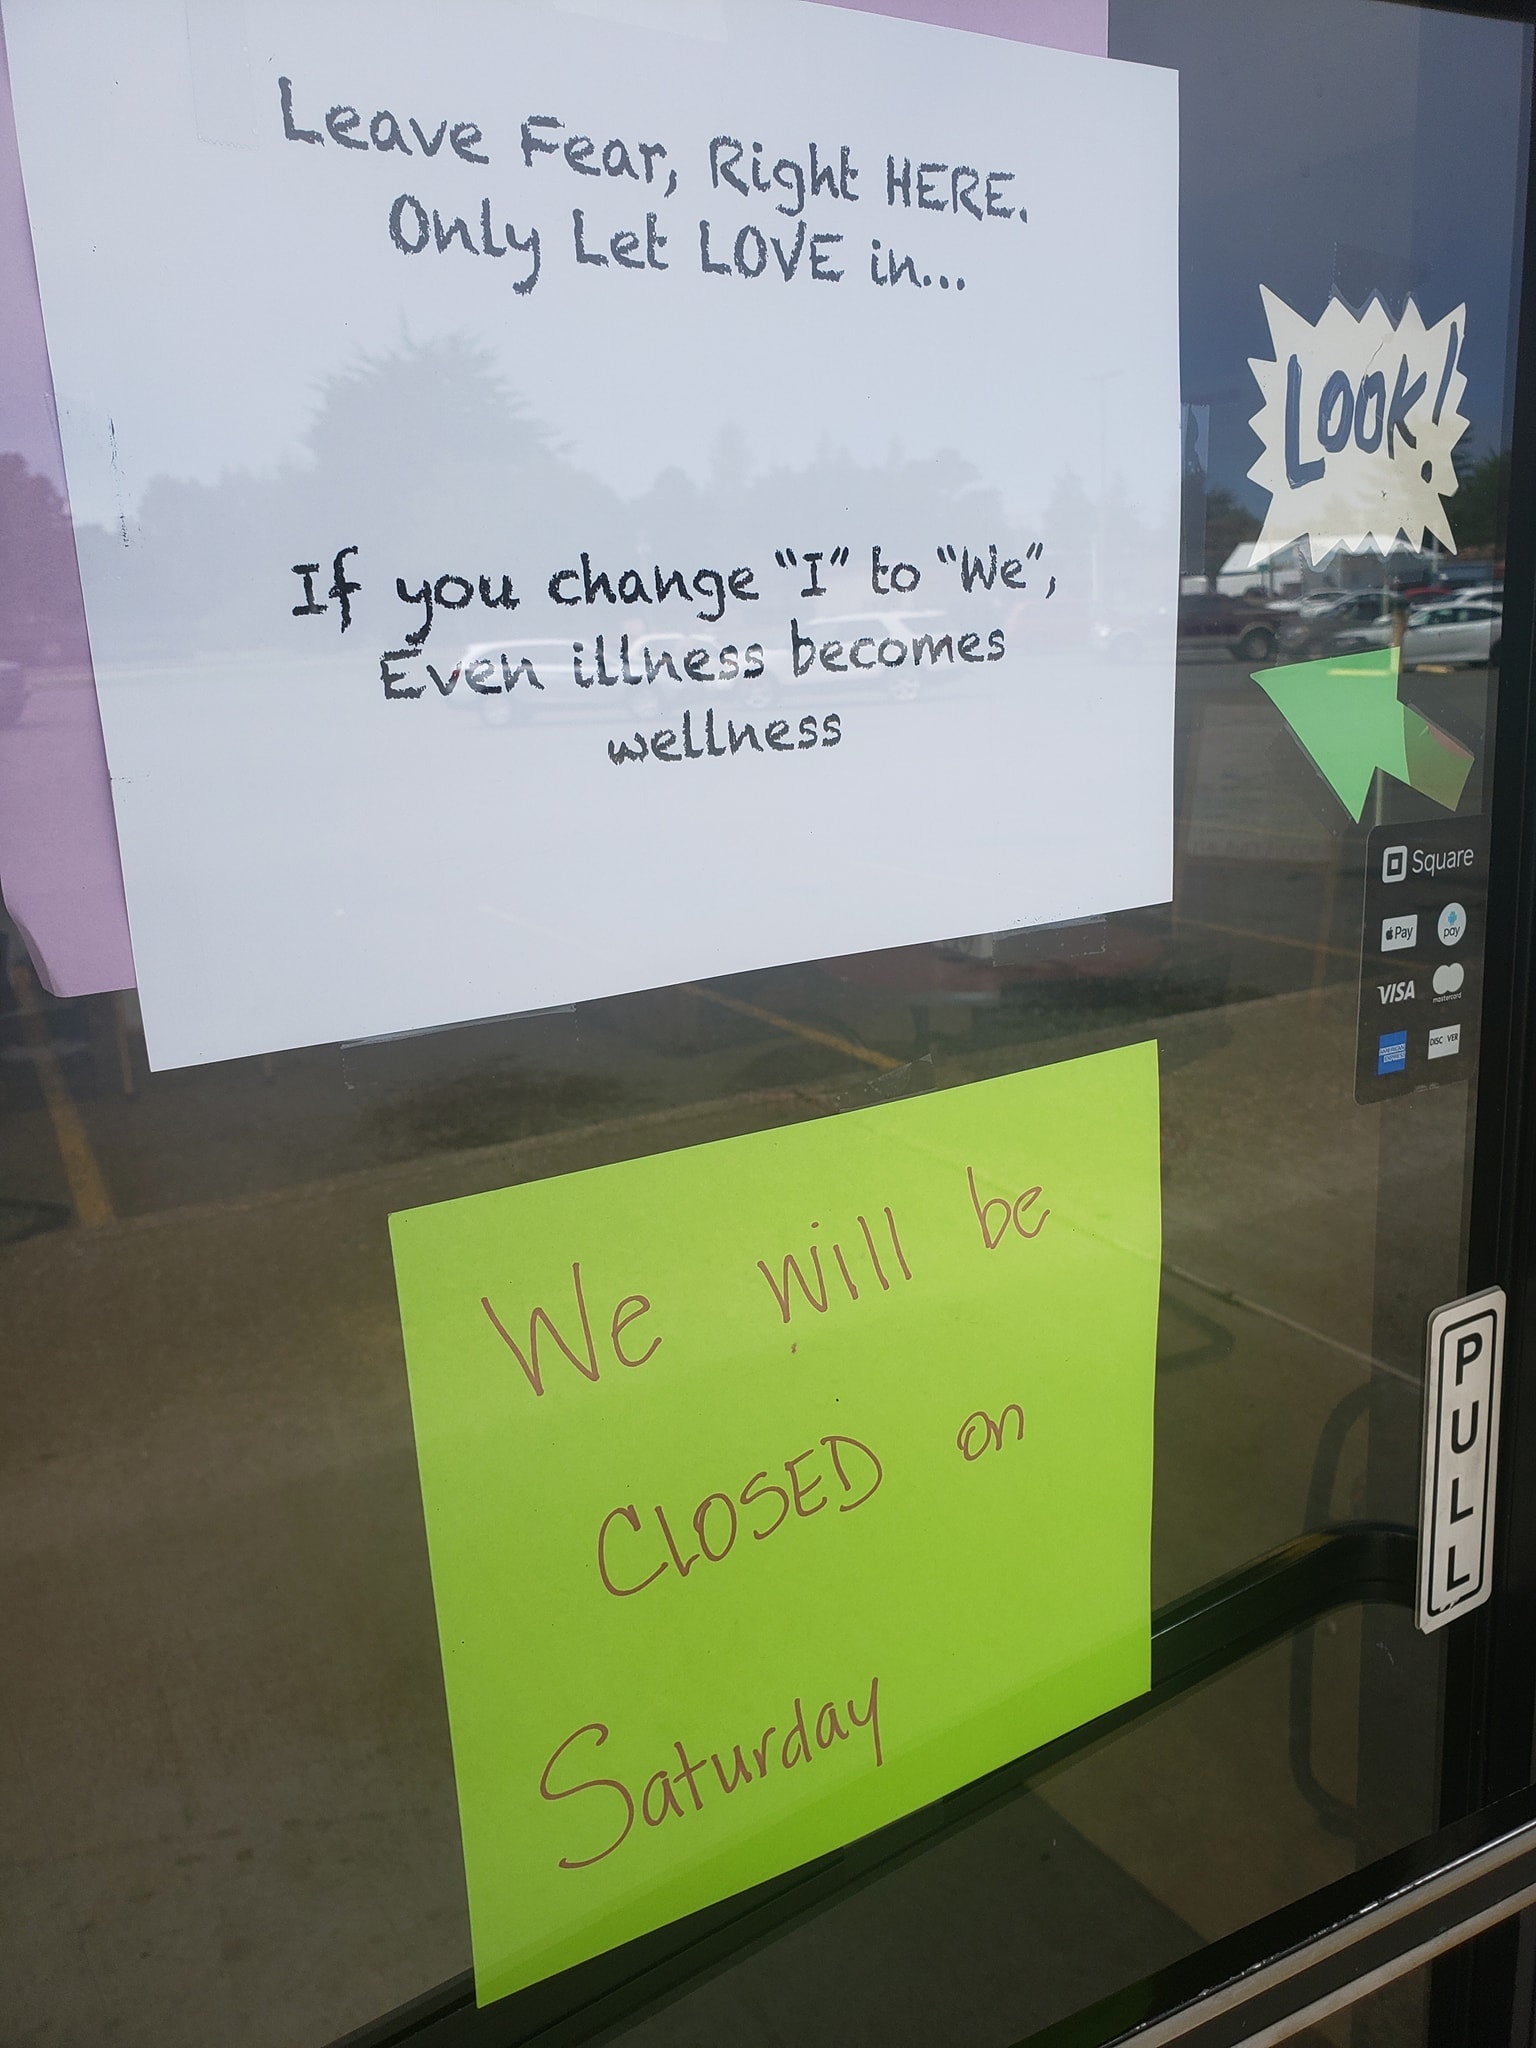 Leave Fear, Right HERE.
Only Let LOVE in...
If you change "I" to "We",
Even illness becomes
wellness
LOOK!
Square
Pay
pay
VISA
mastercard
AMERICAN
EXPRESS
DISCOVER
We will be
CLOSED on
Saturday
PULL